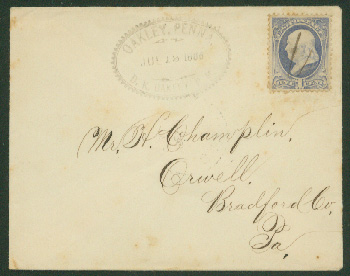 OAKLEY, PENN
Mr. H. Champlin,
Orwell.
Bradford Co.
Pa.